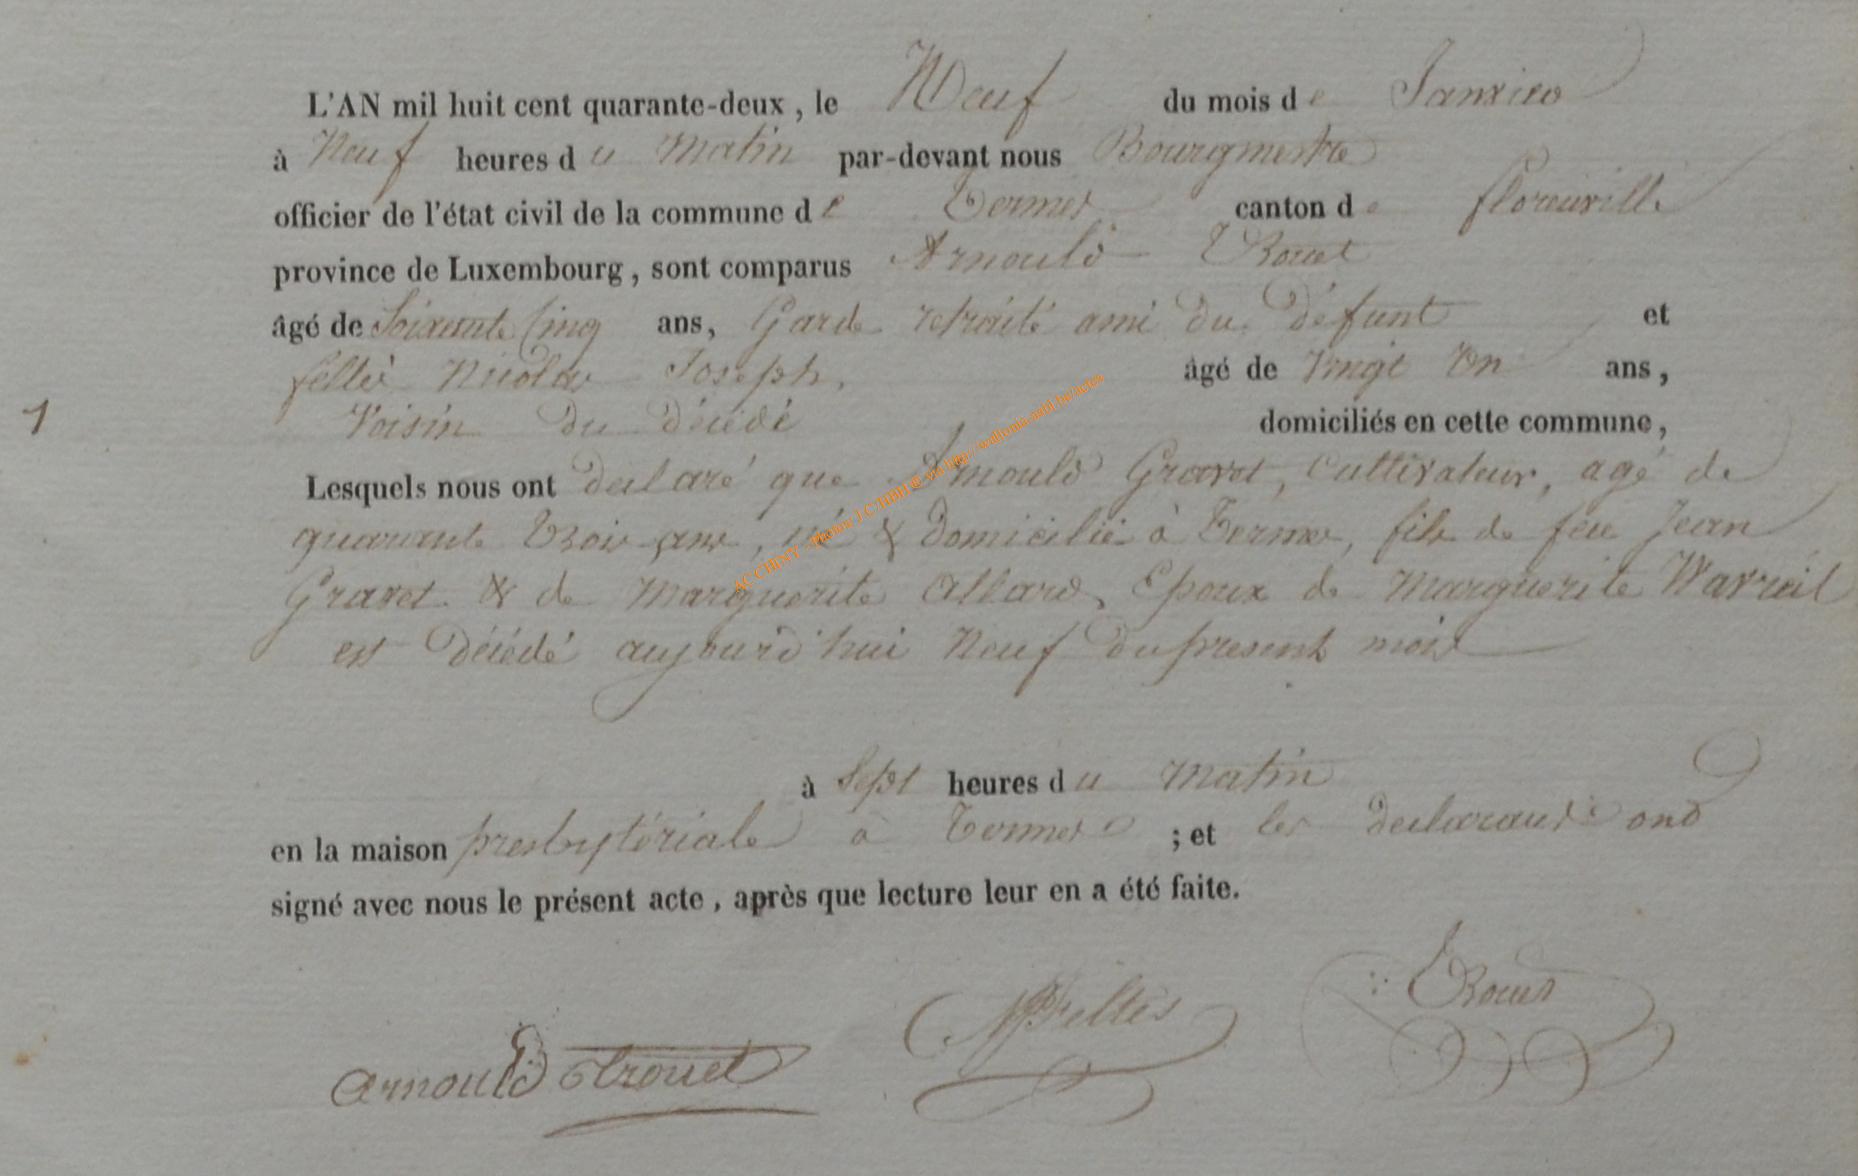 L'AN mil huit cent quarante-deux, le Neuf du mois de Janvier
à Neuf heures du Matin par-devant nous Bourgmestre
officier de l'état civil de la commune de Termes canton de florenville
province de Luxembourg, sont comparus Arnould Trouet
âgé de Soixante Cinq ans, Garde retraité ami du défunt et
feltès Nicolas Joseph, âgé de Vingt un ans,
1
Voisin du décédé domiciliés en cette commune,
Lesquels nous ont déclaré que Arnould Gravet, Cultivateur, agé de
quarante trois ans, né & domicilié à Termes, fils de feu Jean
Gravet & de Marguerite Allard, Epoux de Marguerite Wavreil
est décédé aujourd'hui Neuf du présent mois
à Sept heures du Matin
en la maison presbytériale à Termes ; et les déclarants ont
signé avec nous le présent acte, après que lecture leur en a été faite.
Arnould Trouet NJFeltès Trouet